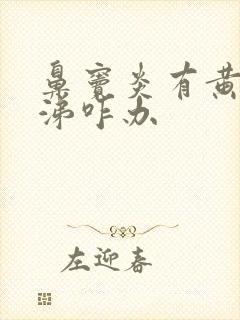 鼻窦炎有黄
涕咋办
左迎春